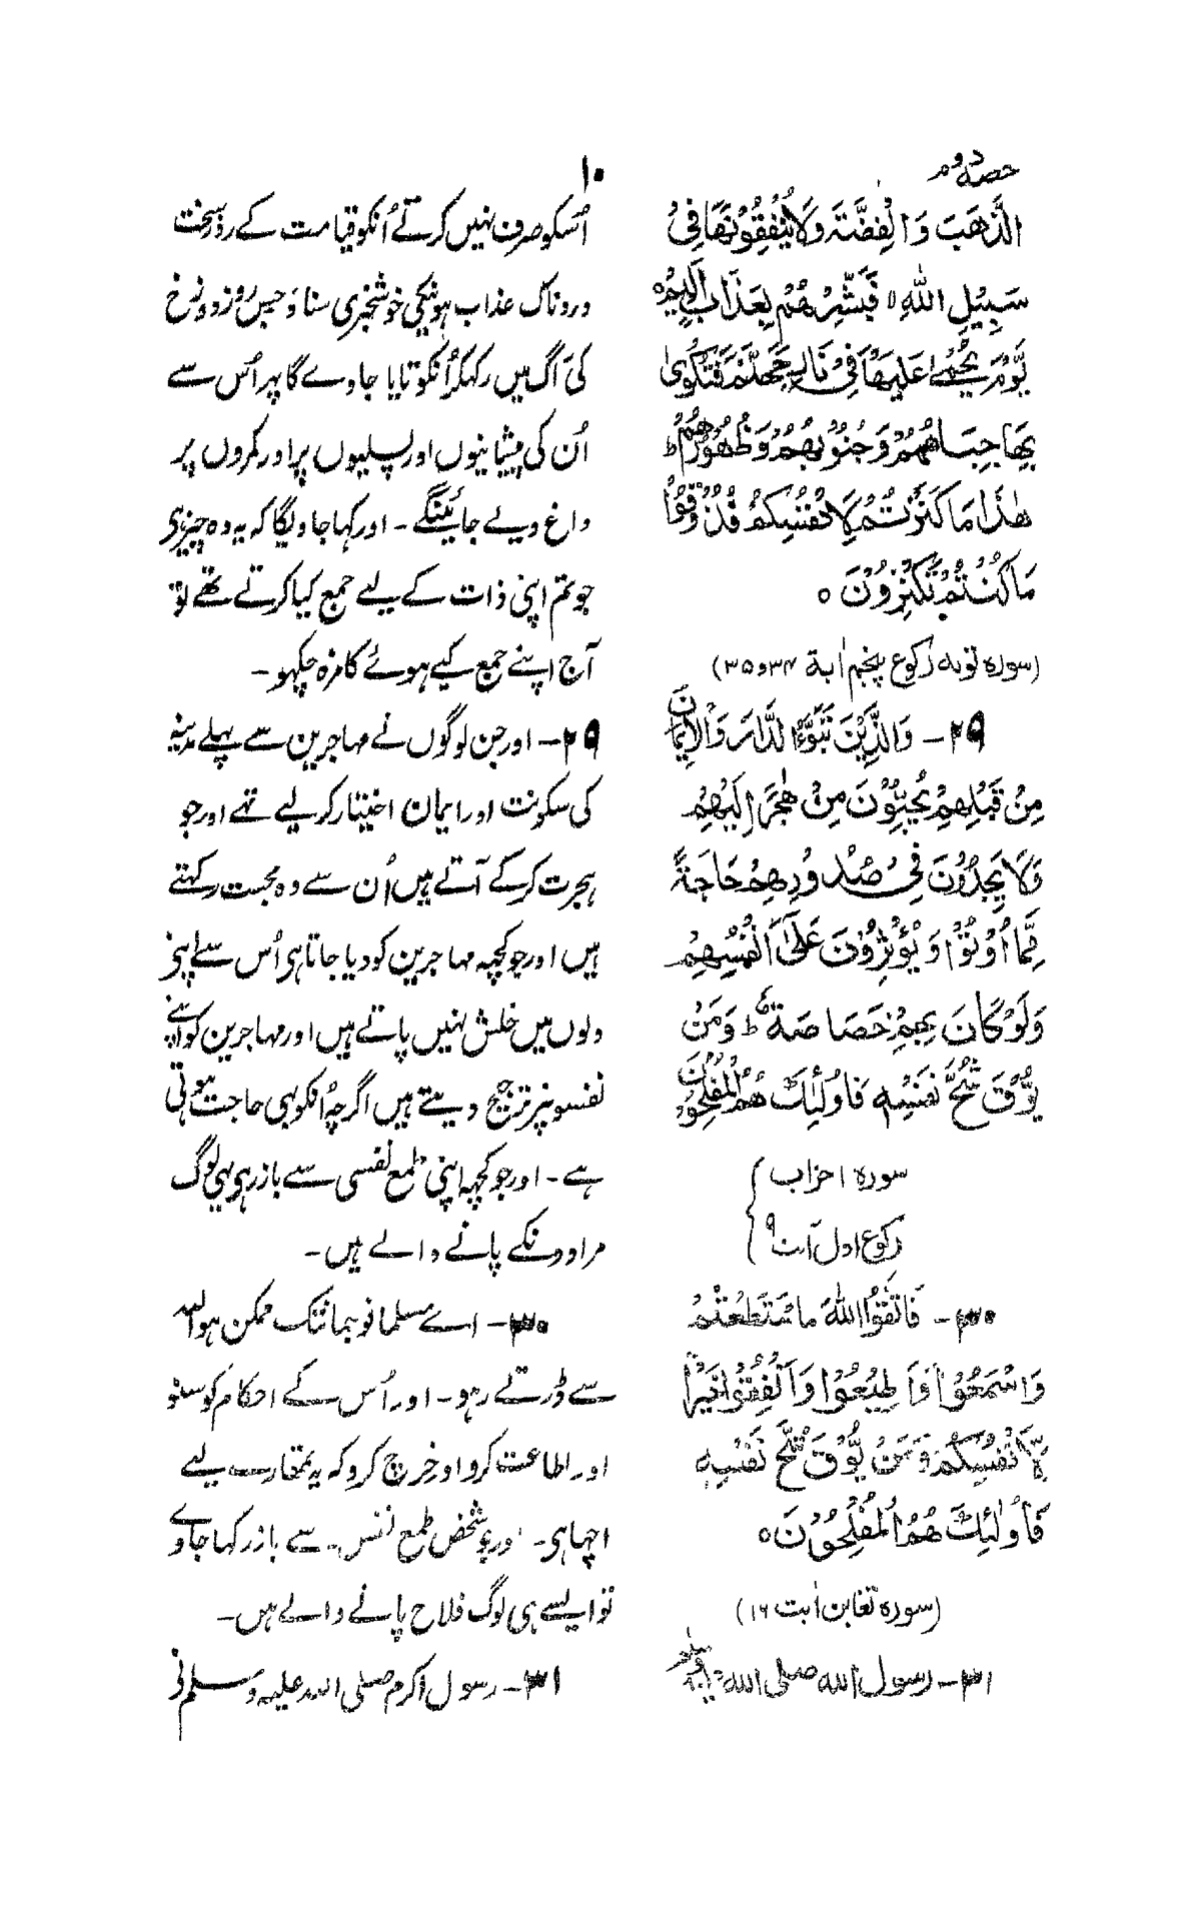 حصہ دوم
۱۰
الذَّهَبَ وَالْفِضَّةَ وَلَا يُنْفِقُوْنَهَا فِيْ
سَبِيْلِ اللّٰهِ ۙ فَبَشِّرْهُمْ بِعَذَابٍ اَلِيْمٍ ۙ
يَّوْمَ يُحْمٰى عَلَيْهَا فِيْ نَارِ جَهَنَّمَ فَتُكْوٰى
بِهَا جِبَاهُهُمْ وَجُنُوْبُهُمْ وَظُهُوْرُهُمْ ط
هٰذَا مَا كَنَزْتُمْ لِاَنْفُسِكُمْ فَذُوْقُوْا
مَا كُنْتُمْ تَكْنِزُوْنَ ٥
(سورہ توبہ رکوع پنجم اٰیۃ ۳۴و۳۵)
۲۹ – وَالَّذِيْنَ تَبَوَّؤُا الدَّارَ وَالْاِيْمَانَ
مِنْ قَبْلِهِمْ يُحِبُّوْنَ مِنْ هٰجَرَ اِلَيْهِمْ
وَلَا يَجِدُوْنَ فِيْ صُدُوْرِهِمْ حَاجَةً
مِّمَّا اُوْتُوْا وَيُؤْثِرُوْنَ عَلٰٓى اَنْفُسِهِمْ
وَلَوْ كَانَ بِهِمْ خَصَاصَةٌ ط وَمَنْ
يُّوْقَ شُحَّ نَفْسِهٖ فَاُولٰٓئِكَ هُمُ الْمُفْلِحُوْنَ
سورہ احزاب
رکوع اول آیت ۹
۳۰ – فَاتَّقُوا اللّٰهَ مَا اسْتَطَعْتُمْ
وَاسْمَعُوْا وَاَطِيْعُوْا وَاَنْفِقُوْا خَيْرًا
لِّاَنْفُسِكُمْ وَمَنْ يُّوْقَ شُحَّ نَفْسِهٖ
فَاُولٰٓئِكَ هُمُ الْمُفْلِحُوْنَ ٥
(سورہ تغابن اٰیت ۱۶)
۳۱ – رسول اللہ صلی اللہ علیہ وسلم
اُسکو صرف نہیں کرتے اُنکو قیامت کے روز سخت
دردناک عذاب ہونیکی خوشخبری سناؤ جس روز دوزخ
کی آگ میں رکھکر اُنکو تایا جاوے گا پہر اُس سے
اُن کی پیشانیوں اور پسلیوں پر اور کمروں پر
داغ دیے جائینگے – اور کہا جاویگا کہ یہ وہ چیز ہی
جو تم اپنی ذات کے لیے جمع کیا کرتے تھے تو
آج اپنے جمع کیے ہوئے کا مزہ چکھو –
۲۹ – اور جن لوگوں نے مہاجرین سے پہلے مدینہ
کی سکونت اور ایمان اختیار کرلیے تھے اور جو
ہجرت کرکے آتے ہیں اُن سے وہ محبت رکہتے
ہیں اور جو کچہہ مہاجرین کو دیا جاتا ہی اُس سے اپنے
دلوں میں خلش نہیں پاتے ہیں اور مہاجرین کو اپنے
نفسو نپر ترجیح دیتے ہیں اگرچہ اُنکو بہی حاجت ہوتی
ہے – اور جو کچہہ اپنی طمع نفسی سے باز رہو یہی لوگ
مرادونکے پانے والے ہیں –
۳۰ – اے مسلمانو جہانتک ممکن ہو اللہ
سے ڈرتے رہو – اور اُس کے احکام کو سنو
اور اطاعت کرو اور خرچ کرو کہ یہ تمھارے لیے
اچہا ہی – اور جو شخص طمع نفس سے باز رکہا جاوے
تو ایسے ہی لوگ فلاح پانے والے ہیں –
۳۱ – رسول اکرم صلی اللہ علیہ وسلم نی